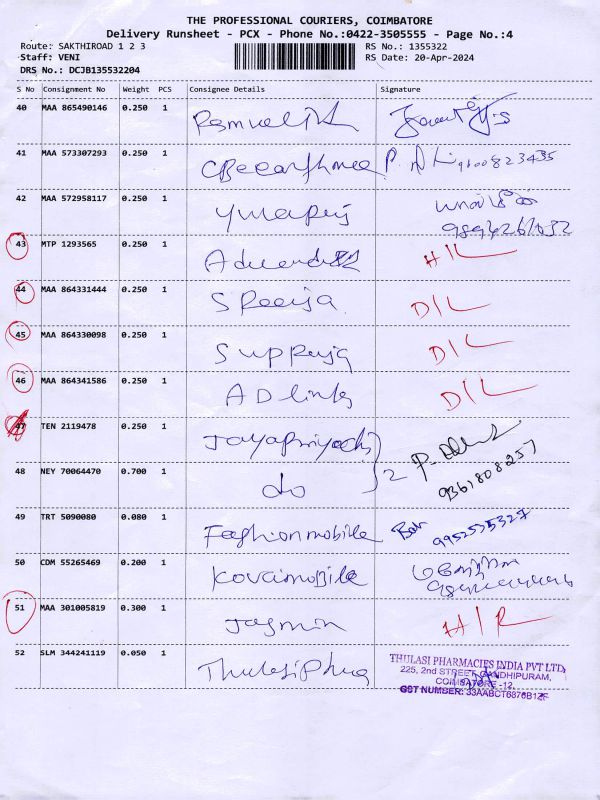 THE PROFESSIONAL COURIERS, COIMBATORE
Delivery Runsheet - PCX - Phone No.:0422-3505555 - Page No.:4
Route: SAKTHIROAD 1 2 3 RS No.: 1355322
Staff: VENI RS Date: 20-Apr-2024
DRS No.: DCJB135532204
S No Consignment No Weight PCS Consignee Details Signature
40 MAA 865490146 0.250 1
41 MAA 573307293 0.250 1 9600823435
42 MAA 572958117 0.250 1
43 MTP 1293565 0.250 1
44 MAA 864331444 0.250 1 Sreeija D/L
45 MAA 864330098 0.250 1 D/L
46 MAA 864341586 0.250 1 AD links D/L
47 TEN 2119478 0.250 1
48 NEY 70064470 0.700 1 do 2 9361808257
49 TRT 5090080 0.080 1 Fashionmobile 9952535327
50 CDM 55265469 0.200 1 Kovaimobile
51 MAA 301005819 0.300 1 Jasmin
52 SLM 344241119 0.050 1
THULASI PHARMACIES INDIA PVT LTD
225, 2nd STREET, GANDHIPURAM,
COIMBATORE -12.
GST NUMBER: 33AABCT6876B1ZF